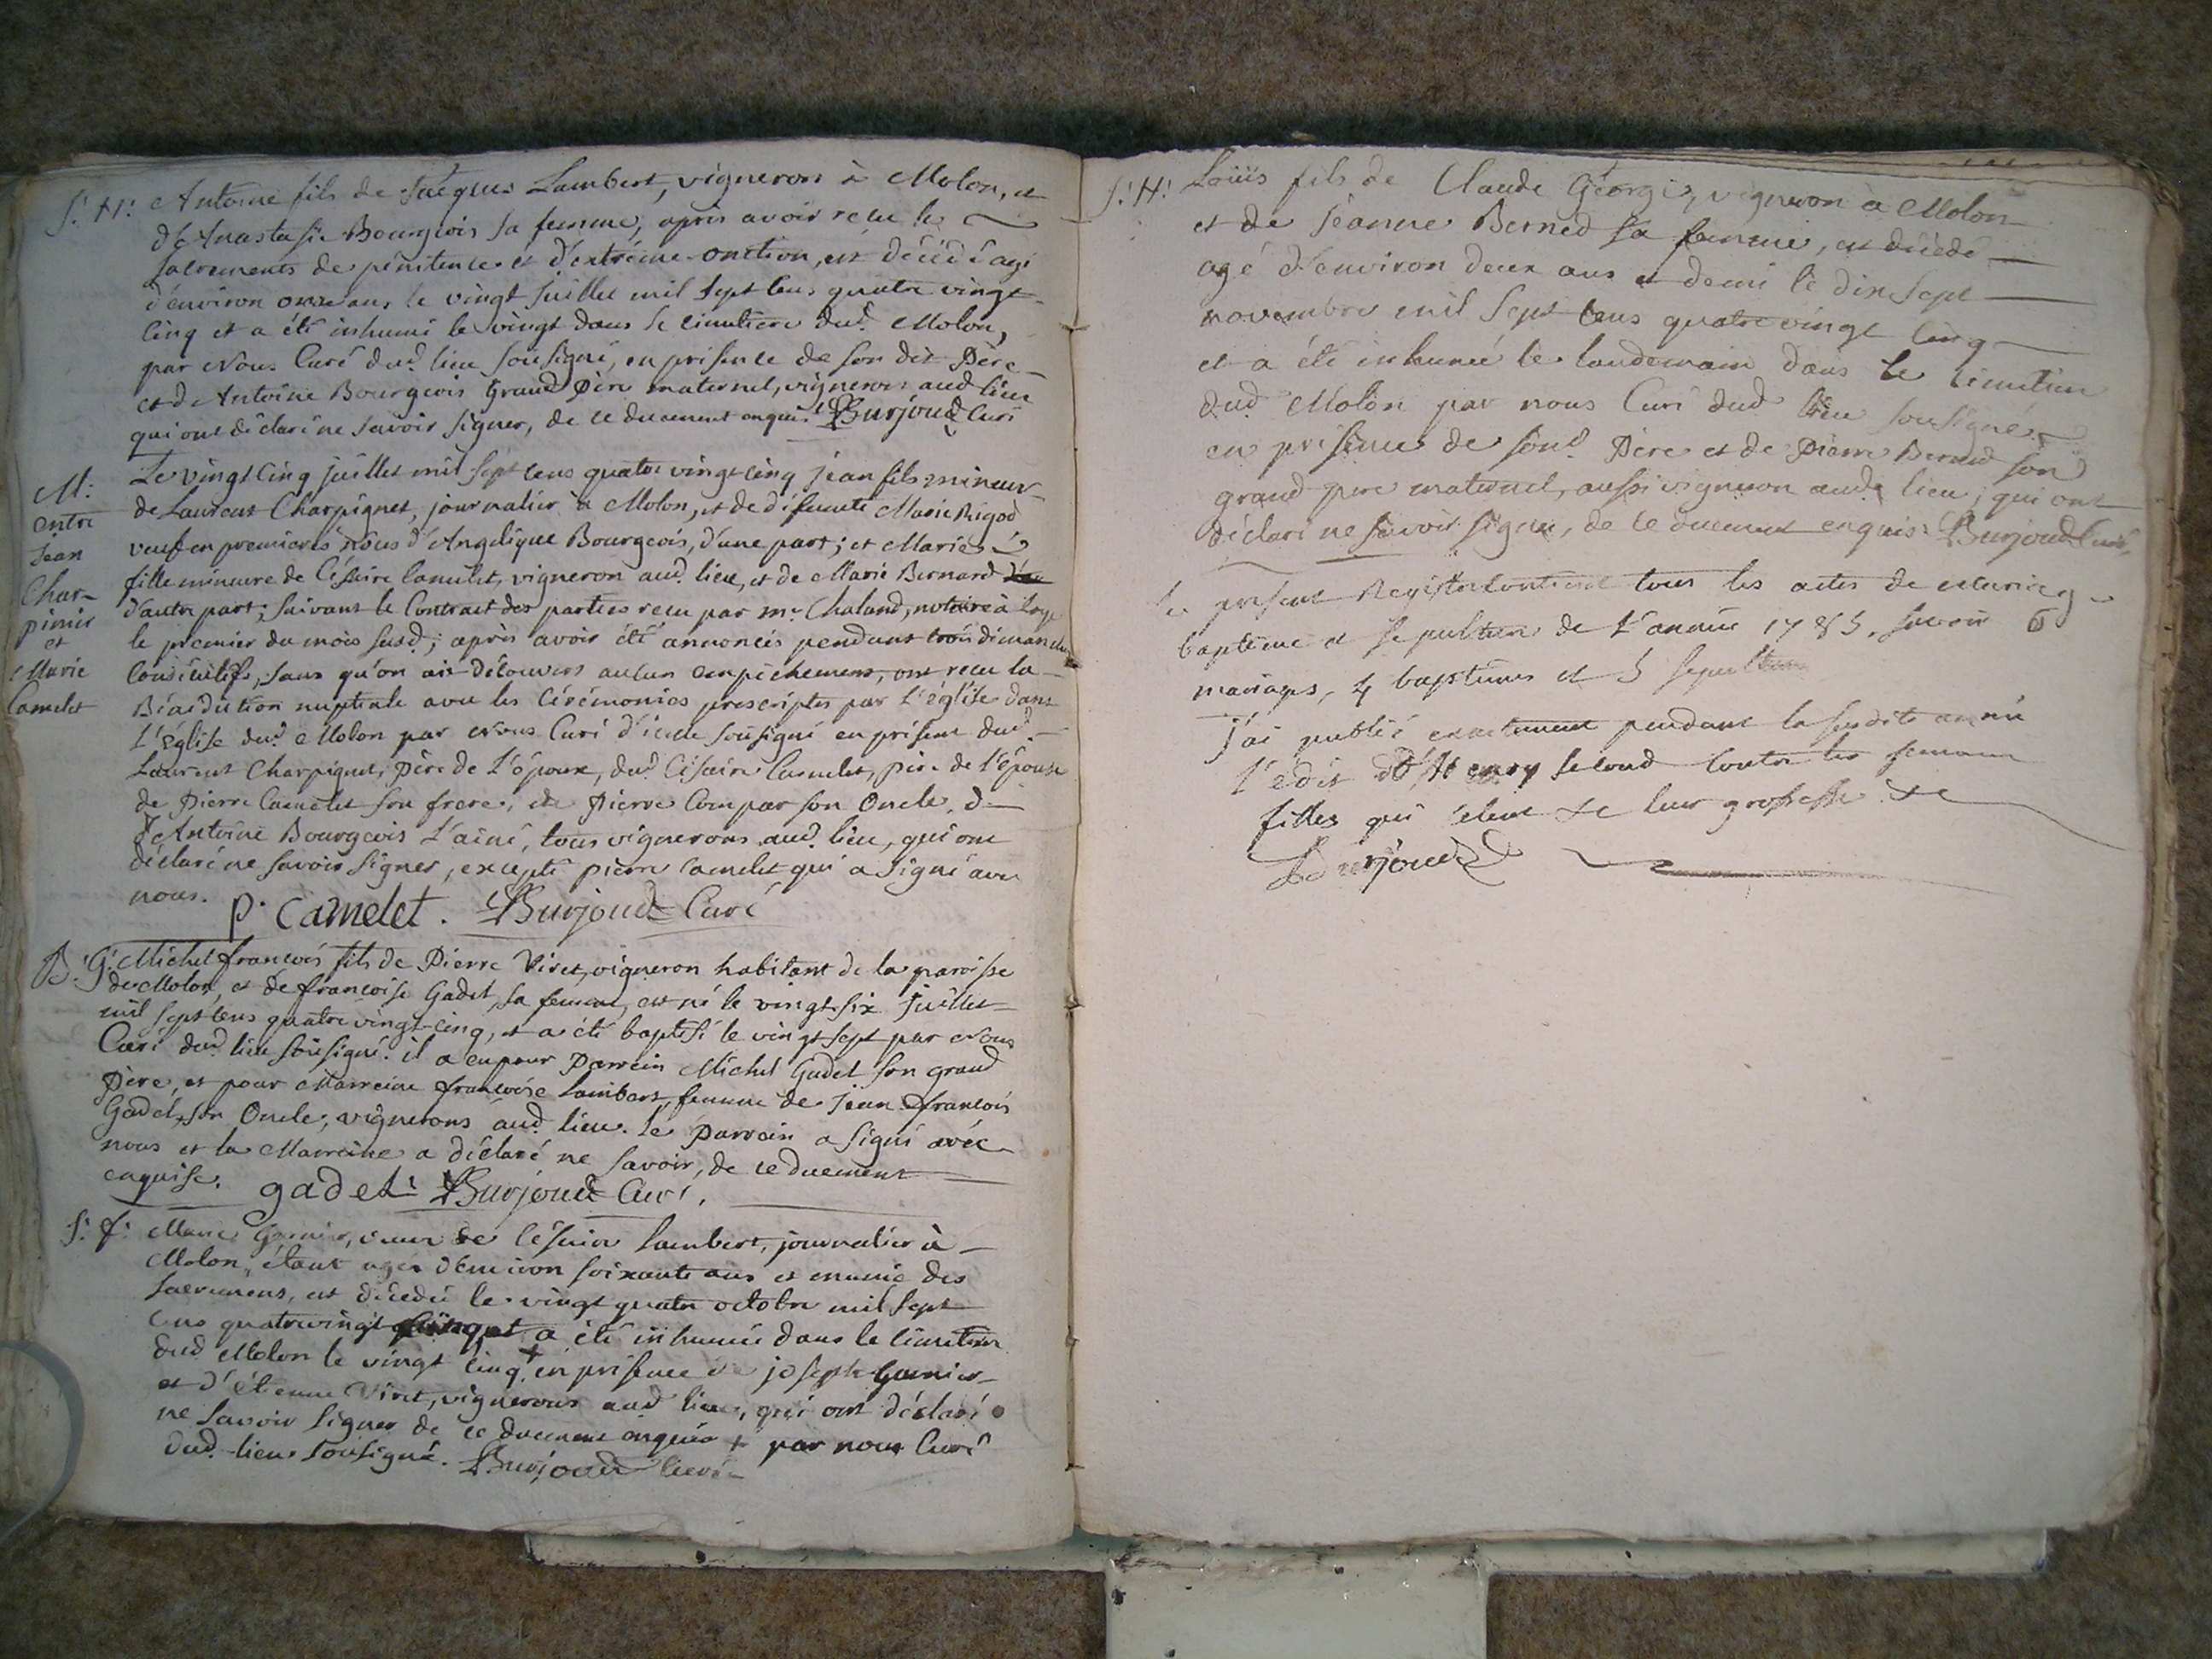 S: H: Antoine fils de Jacques Lambert, vigneron à Molon, et
d'Anastasie Bourgeois sa femme, après avoir reçu les
sacrements de pénitence et d'extrême-onction, est décédé agé
d'environ onze ans le vingt juillet mil sept cens quatre vingt
cinq et a été inhumé le vingt dans le cimetiere dud. Molon,
par Nous Curé dud. lieu sousigné, en présence de son dit Père
et d'Antoine Bourgeois Grand Père maternel, vignerons aud. lieu
qui ont déclaré ne savoir signer, de ce duement enquis. Burjoud Curé
M:
entre
Jean
Char-
pinié
et
Marie
Camelet
Le vingt cinq juillet mil sept cens quatre vingt cinq jean fils mineur
de Laurent Charpignet, journalier à Molon, et de défunte Marie Rigod
veuf en premieres nôces d'Angelique Bourgeois, d'une part; et Marie
fille mineure de Césaire Camelet, vigneron aud. lieu, et de Marie Bernard
d'autre part; suivant le Contract des parties reçu par mr. Chaland, notaire à
le premier du mois susd.; après avoir été annoncés pendant trois dimanches
consécutifs, sans qu'on ait découvert aucun empêchement, ont reçu la
Bénédiction nuptiale avec les Cérémonies prescriptes par l'église dans
l'Église dud. Molon par Nous Curé d'icelle sousigné en présence dud.
Laurent Charpignet, Père de l'époux, dud. Césaire Camelet, père de l'épouse
de Pierre Camelet son frere, de Pierre Compar son Oncle, d
d'Antoine Bourgeois l'ainé, tous vignerons aud. lieu, qui ont
déclaré ne savoir signer, excepté pierre Camelet qui a signé avec
nous. P. Camelet. Burjoud Curé
B: G: Michel françois fils de Pierre Viret, vigneron habitant de la paroisse
de Molon, et de françoise Gadet, sa femme, est né le vingt-six juillet
mil sept cens quatre vingt-cinq, et a été baptisé le vingt sept par Nous
Curé dud. lieu sousigné. il a eu pour Parrein Michel Gadet son grand
Père, et pour Marreine françoise Lambert, femme de Jean françois
Gadet, son Oncle, vignerons aud. lieu. le Parrain a signé avec
nous et la Marreine a déclaré ne savoir, de ce duement
enquise. gadet Burjoud Curé.
S: f: Marie Garnier, veuve de Césaire Lambert, journalier à
Molon, étant agée d'environ soixante ans et munie des
sacremens, est décédée le vingt quatre octobre mil sept
cens quatrevingt cinq et a été inhumée dans le cimetiere
dud. Molon le vingt cinq + en présence de joseph Garnier
et d'étienne Viret, vignerons aud. lieu, qui ont déclaré
ne savoir signer de ce duement enquis + par nous Curé
dud. lieu sousigné. Burjoud Curé
S: H: Loüis fils de Claude Géorgi, vigneron à Molon
et de Jeanne Berned sa femme, est décédé
agé d'environ deux ans et demi le dix sept
novembre mil sept cens quatre vingt cinq
et a été inhumé le landemain dans le cimetiere
dud. Molon par nous Curé dud. lieu sousigné
en présence de sond. Père et de Pierre Berned son
grand pere maternel, aussi vigneron aud. lieu, qui ont
déclaré ne savoir signer, de ce duement enquis. Burjoud Curé
Le présent Registre contient tous les actes de mariage
baptême et sépulture de l'année 1785. savoir 6
mariages, 4 baptêmes et 5 sepultures
j'ai publié exactement pendant la susdite année
l'édit d'Henry second contre les femmes
filles qui célent de leur grossesse &c
Burjoud